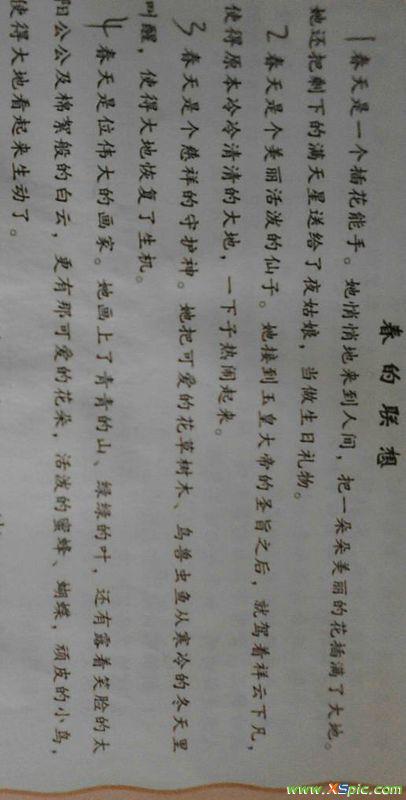 春的联想
1 春天是一个插花能手。她悄悄地来到人间，把一朵朵美丽的花插满了大地。
她还把剩下的满天星送给了夜姑娘，当做生日礼物。
2 春天是个美丽活泼的仙子。她接到玉皇大帝的圣旨之后，就驾着祥云下凡，
使得原本冷冷清清的大地，一下子热闹起来。
3 春天是个慈祥的守护神。她把可爱的花草树木、鸟兽虫鱼从寒冷的冬天里
叫醒，使得大地恢复了生机。
4 春天是位伟大的画家。她画上了青青的山、绿绿的叶，还有露着笑脸的太
阳公公及棉絮般的白云，更有那可爱的花朵，活泼的蜜蜂、蝴蝶，顽皮的小鸟，
使得大地看起来生动了。
www.XSpic.com